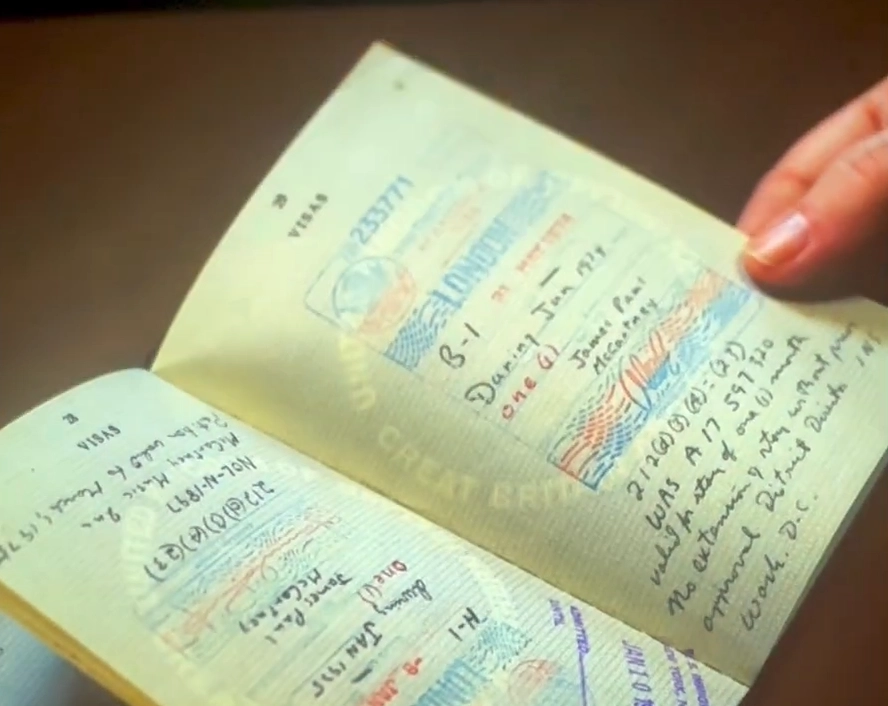 29
VISAS
233771
LONDON
21 MAY 1974
B-1
During Jun 1974
one (1)
James Paul
McCartney
212(d)(3)(A)-(27)
WAS A 17 597 320
valid for stay of one (1) month
No extension of stay without prior
approval District Director INS
Wash. D.C.
GREAT BRITAIN
28
VISAS
Petition valid to March
McCartney Music Inc
NOL-N-1897
212(d)(3)(A)(23)
James Paul
McCartney
one (1)
during JAN 1975
H-1
JAN
ADMITTED
UNTIL